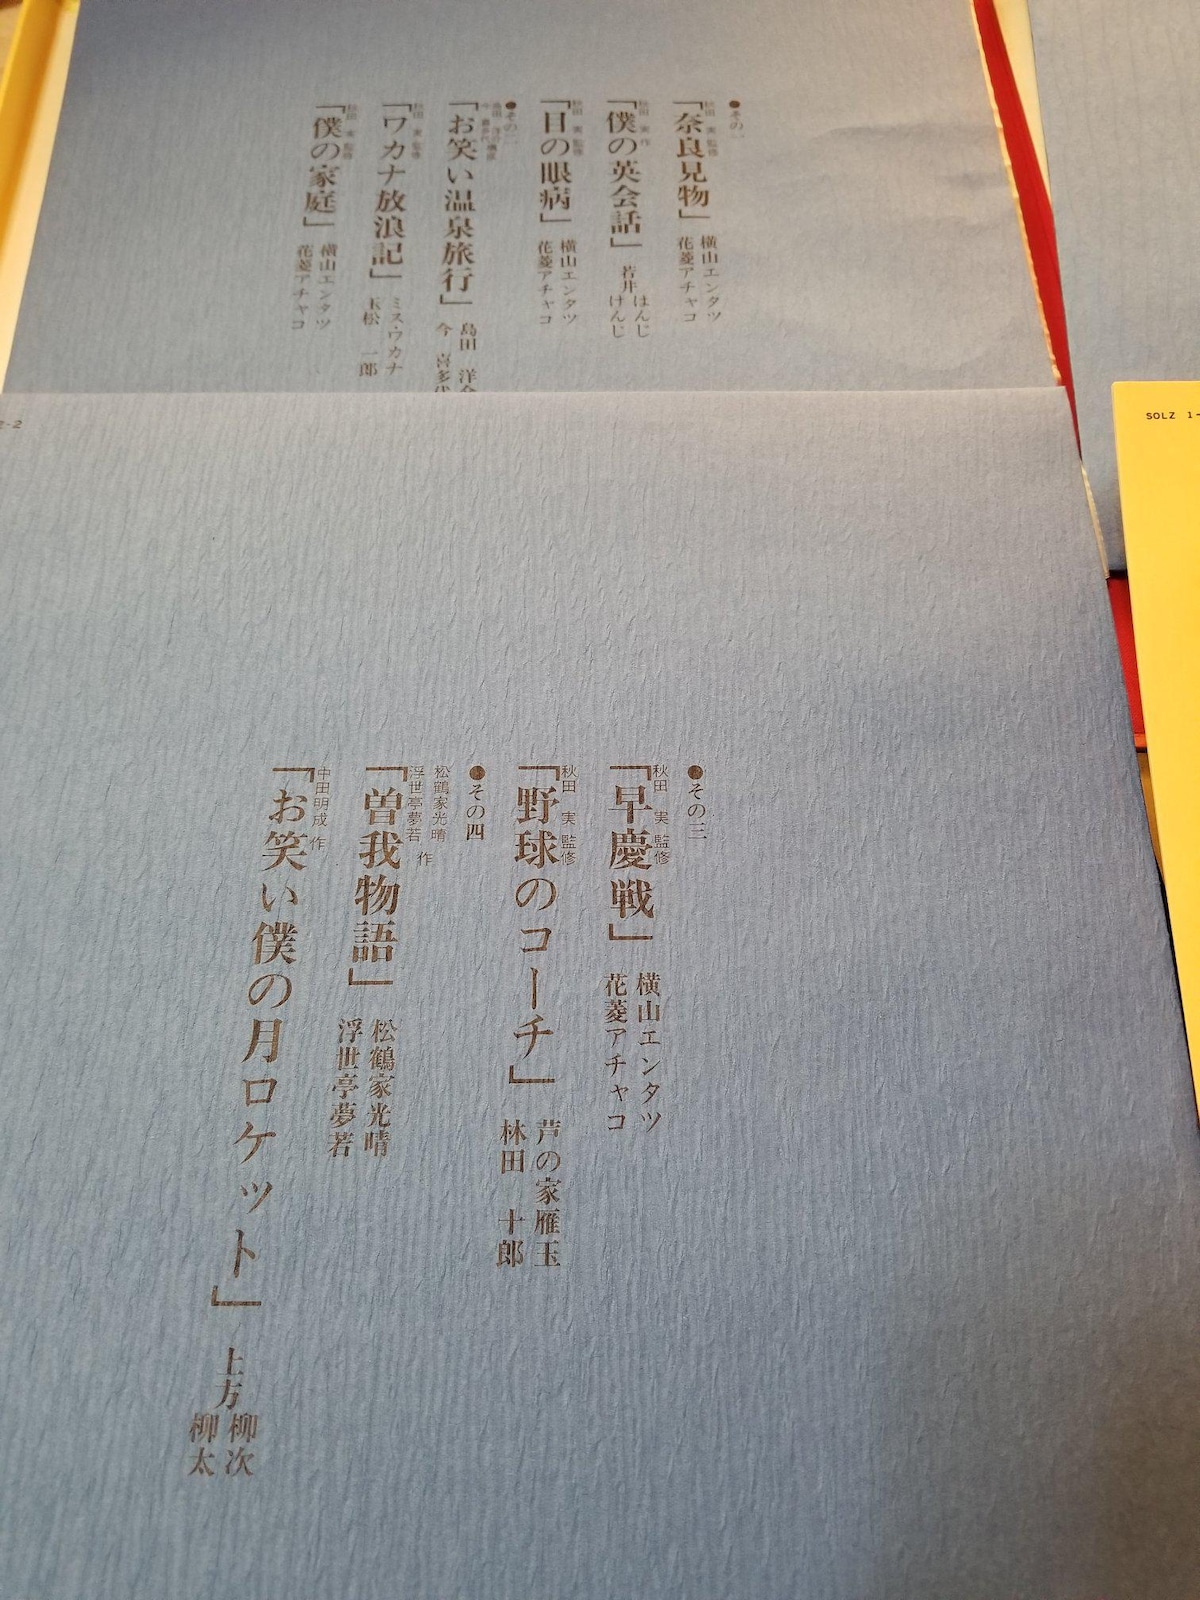 ●その一
秋田 実 監修
「奈良見物」 横山エンタツ
花菱アチャコ
秋田 実 作
「僕の英会話」 若井 はんじ
けんじ
秋田 実 監修
「目の眼病」 横山エンタツ
花菱アチャコ
●その二
「お笑い温泉旅行」 島田 洋
今 喜多
秋田 実 監修
「ワカナ放浪記」 ミス・ワカナ
玉松 一郎
秋田 実 監修
「僕の家庭」 横山エンタツ
花菱アチャコ
SOLZ 1-
●その三
秋田 実 監修
「早慶戦」 横山エンタツ
花菱アチャコ
秋田 実 監修
「野球のコーチ」 芦の家雁玉
林田 十郎
●その四
松鶴家光晴
浮世亭夢若 作
「曽我物語」 松鶴家光晴
浮世亭夢若
中田明成 作
「お笑い僕の月ロケット」 上方 柳次
柳太